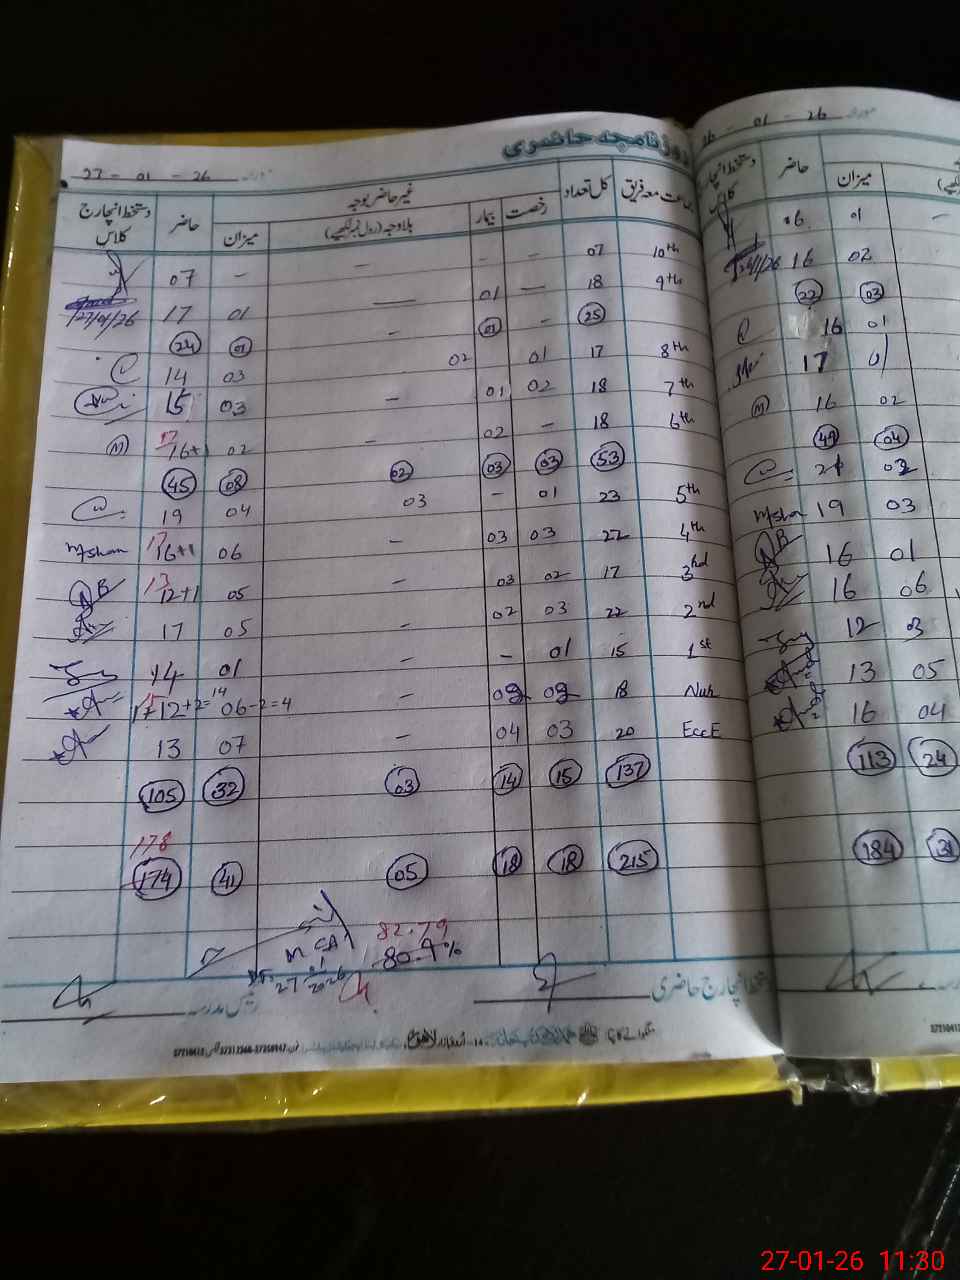 روزنامچہ حاضری
27 - 01 - 26 مورخہ
جماعت معہ فریق کل تعداد رخصت بیمار غیر حاضر بوجہ بلاوجہ (رول نمبر لکھیے) میزان حاضر دستخط انچارج کلاس
10th 07 - - — - 07
9th 18 — 01 — 01 17 27/01/26
25 - 01 - 01 24
8th 17 01 02 03 14
7th 18 02 01 - 03 15
6th 18 - 02 - 02 16+1 17
53 03 03 02 08 45
5th 23 01 - 03 04 19
4th 22 03 03 - 06 16+1 17
3rd 17 02 03 - 05 12+1 13
2nd 22 03 02 - 05 17
1st 15 01 - - 01 14
Nuh 18 - 06-2=4 1+12+2=14 15
EccE 20 03 04 - 07 13
137 15 14 03 32 105
178
215 18 18 05 41 174
82.79
80.9%
27
دستخط انچارج حاضری
رئیس مدرسہ
16 - 01 - 26 مورخہ
میزان حاضر دستخط انچارج کلاس
- 01 06
02 16
03 22
01 16
01 17
02 16
04 49
03 21
03 19
01 16
06 16
03 12
05 13
04 16
24 113
31 184
27-01-26 11:30